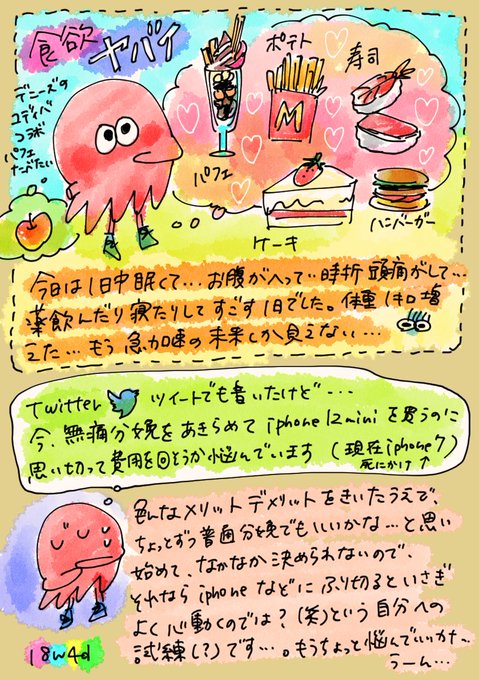 食欲
ヤバイ
デニーズの
ゴディバ
コラボ
パフェ
たべたい
ポテト
寿司
M
パフェ
ケーキ
ハンバーガー
今日は1日中眠くて…お腹がへって…時折頭痛がして…
薬飲んだり寝たりしてすごす1日でした。体重1キロ増
えた…もう急加速の未来しか見えない…
Twitter ツイートでも書いたけど…
今、無痛分娩をあきらめて iphone12miniを買うのに
思い切って費用を回そうか悩んでいます (現在iphone7)
死にかけ↑
色んなメリットデメリットをきいたうえで、
ちょっとずつ普通分娩でもいいかな…と思い
始めて、なかなか決められないので、
それなら iphoneなどにふり切るといさぎ
よく心動くのでは?(笑)という自分への
試練(?)です…。もうちょっと悩んでいいカナ…
うーん…
18w4d